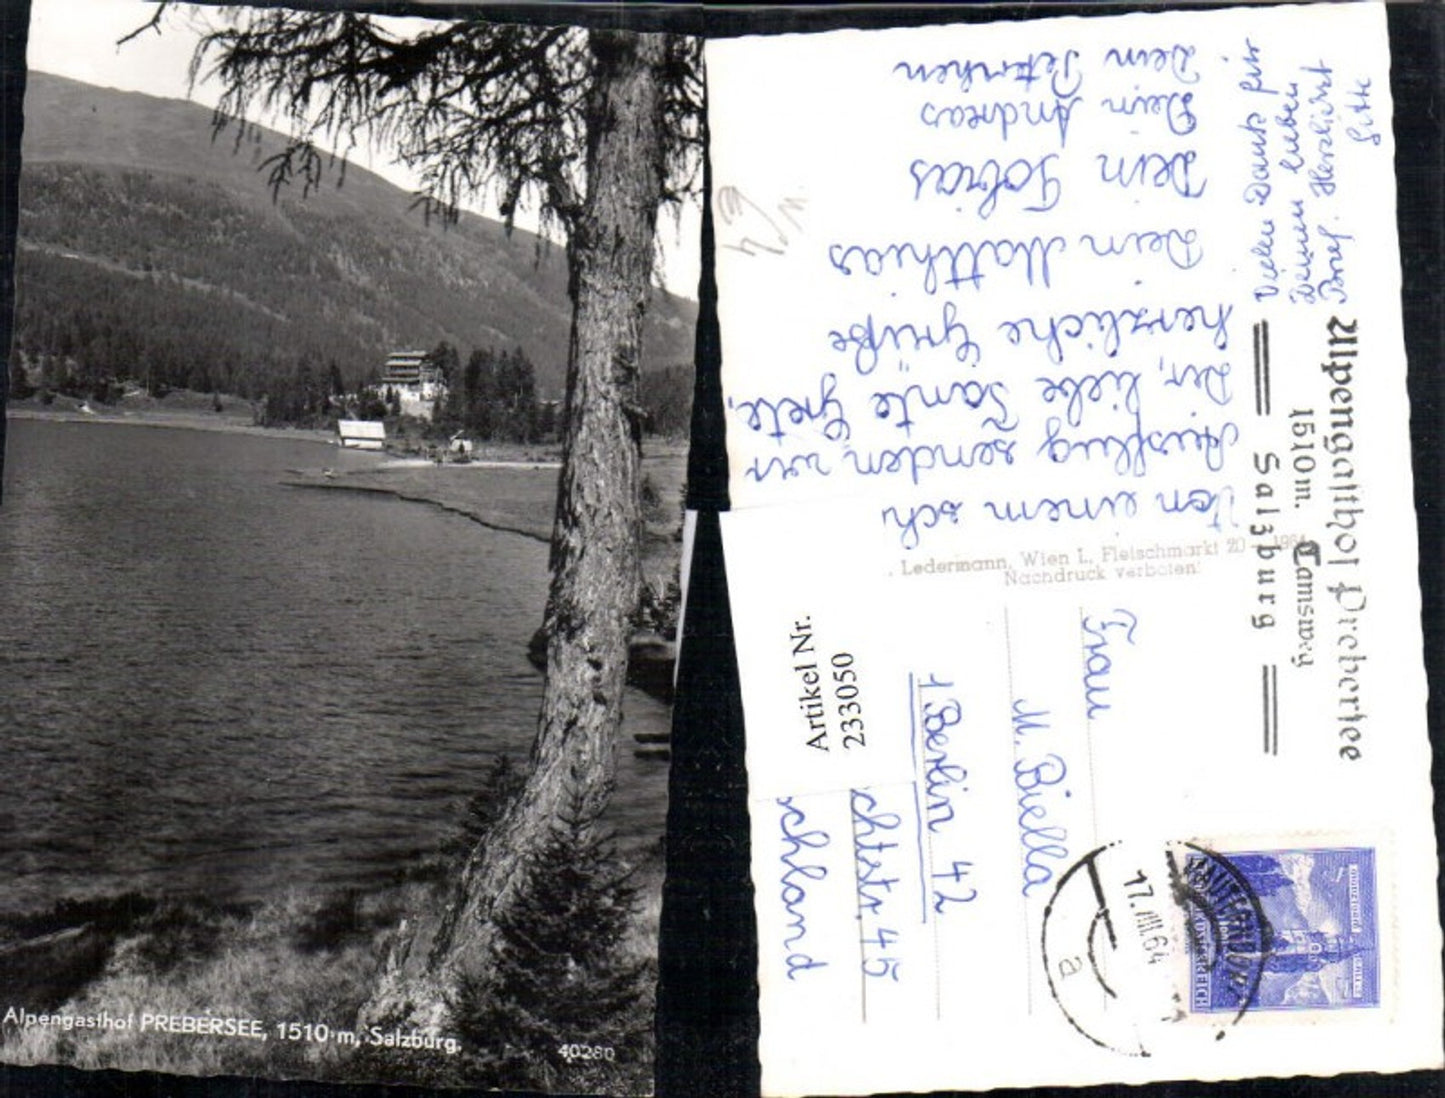 Alpengasthof PREBERSEE, 1510 m, Salzburg.
40280
Von einem sch
Ausflug senden wir
Dir, liebe Tante Grete,
herzliche Grüße
Dein Matthias
Dein Tobias
Dein Andreas
Dein
Vielen Dank für
Deinen lieben
Brief. Herzlichst
Gitte
Alpengasthof Prebersee
1510 m. Tamsweg
Salzburg
Ledermann, Wien I., Fleischmarkt 20 — 1964
Nachdruck verboten!
Artikel Nr.
233050
Frau
M. Biella
1 Berlin 42
chtstr. 45
schland
17.VIII.64
a